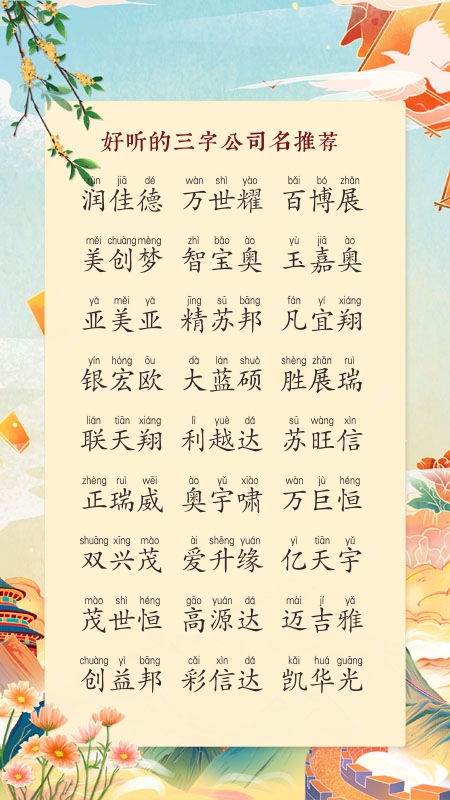 好听的三字公司名推荐
rùn jiā dé wàn shì yào bǎi bó zhǎn
润佳德 万世耀 百博展
měi chuàng mèng zhì bǎo ào yù jiā ào
美创梦 智宝奥 玉嘉奥
yà měi yà jīng sū bāng fán yí xiáng
亚美亚 精苏邦 凡宜翔
yín hóng ōu dà lán shuò shèng zhǎn ruì
银宏欧 大蓝硕 胜展瑞
lián tiān xiáng lì yuè dá sū wàng xìn
联天翔 利越达 苏旺信
zhèng ruì wēi ào yǔ xiào wàn jù héng
正瑞威 奥宇啸 万巨恒
shuāng xīng mào ài shēng yuán yì tiān yǔ
双兴茂 爱升缘 亿天宇
mào shì héng gāo yuán dá mài jí yǎ
茂世恒 高源达 迈吉雅
chuàng yì bāng cǎi xìn dá kǎi huá guāng
创益邦 彩信达 凯华光